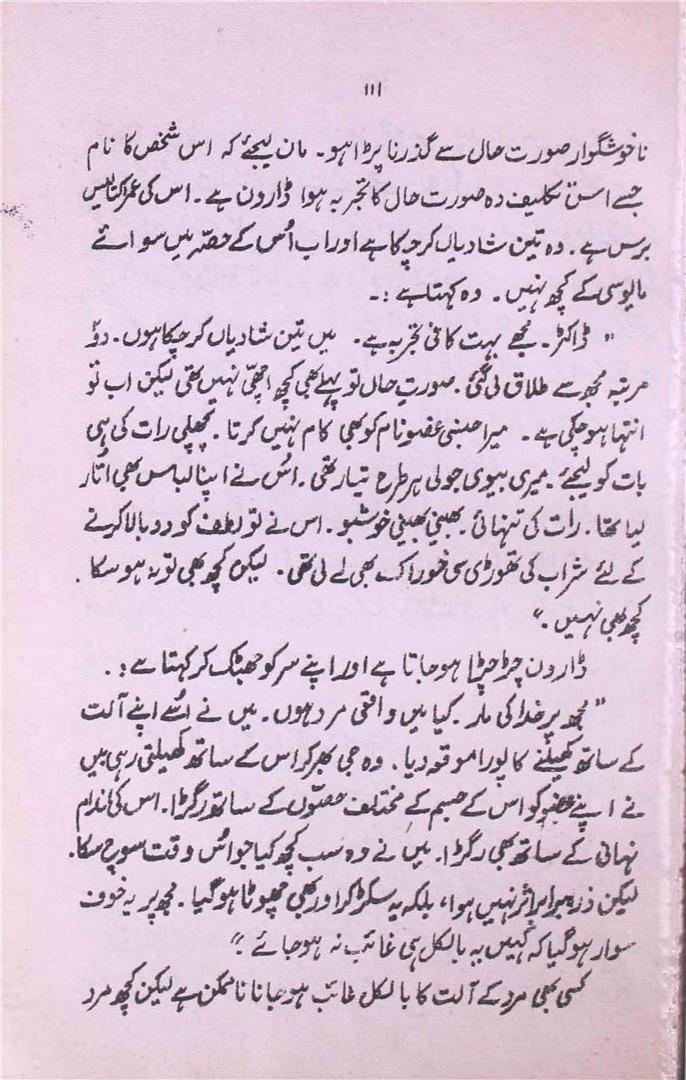 ۱۱۱
ناخوشگوار صورت حال سے گذرنا پڑا ہو۔ مان لیجئے کہ اس شخص کا نام
جسے اس تکلیف دہ صورت حال کا تجربہ ہوا ڈارون ہے۔ اس کی عمر اکتالیس
برس ہے۔ وہ تین شادیاں کر چکا ہے اور اب اُس کے حصّہ میں سوائے
مایوسی کے کچھ نہیں۔ وہ کہتا ہے :۔
" ڈاکٹر۔ مجھے بہت کافی تجربہ ہے۔ میں تین شادیاں کر چکا ہوں۔ دوْ
مرتبہ مجھ سے طلاق لی گئی۔ صورتِ حال تو پہلے بھی کچھ اچھّی نہیں تھی لیکن اب تو
انتہا ہو چکی ہے۔ میرا جنسی عضو نام کو بھی کام نہیں کرتا۔ پچھلی رات کی ہی
بات کو لیجئے۔ میری بیوی جولی ہر طرح تیار تھی۔ اُس نے اپنا لباس بھی اُتار
لیا تھا۔ رات کی تنہائی۔ بھینی بھینی خوشبو۔ اس نے تو لطف کو دوبالا کرنے
کے لئے شراب کی تھوڑی سی خوراک بھی لے لی تھی۔ لیکن کچھ بھی تو نہ ہو سکا۔
کچھ بھی نہیں۔"
ڈارون چڑچڑا ہو جاتا ہے اور اپنے سر کو جھٹک کر کہتا ہے :۔
" مجھ پر خدا کی مار۔ کیا میں واقعی مرد ہوں۔ میں نے اُسے اپنے آلت
کے ساتھ کھیلنے کا پورا موقعہ دیا۔ وہ جی بھر کر اس کے ساتھ کھیلتی رہی میں
نے اپنے عضو کو اس کے جسم کے مختلف حصّوں کے ساتھ رگڑا۔ اس کی اندام
نہانی کے ساتھ بھی رگڑا۔ میں نے وہ سب کچھ کیا جو اُس وقت سوچ سکا۔
لیکن ذرہ برابر اثر نہیں ہوا، بلکہ یہ سکڑ کر اور بھی چھوٹا ہو گیا۔ مجھ پر یہ خوف
سوار ہو گیا کہ کہیں یہ بالکل ہی غائب نہ ہو جائے۔"
کسی بھی مرد کے آلت کا بالکل غائب ہو جانا ناممکن ہے لیکن کچھ مرد